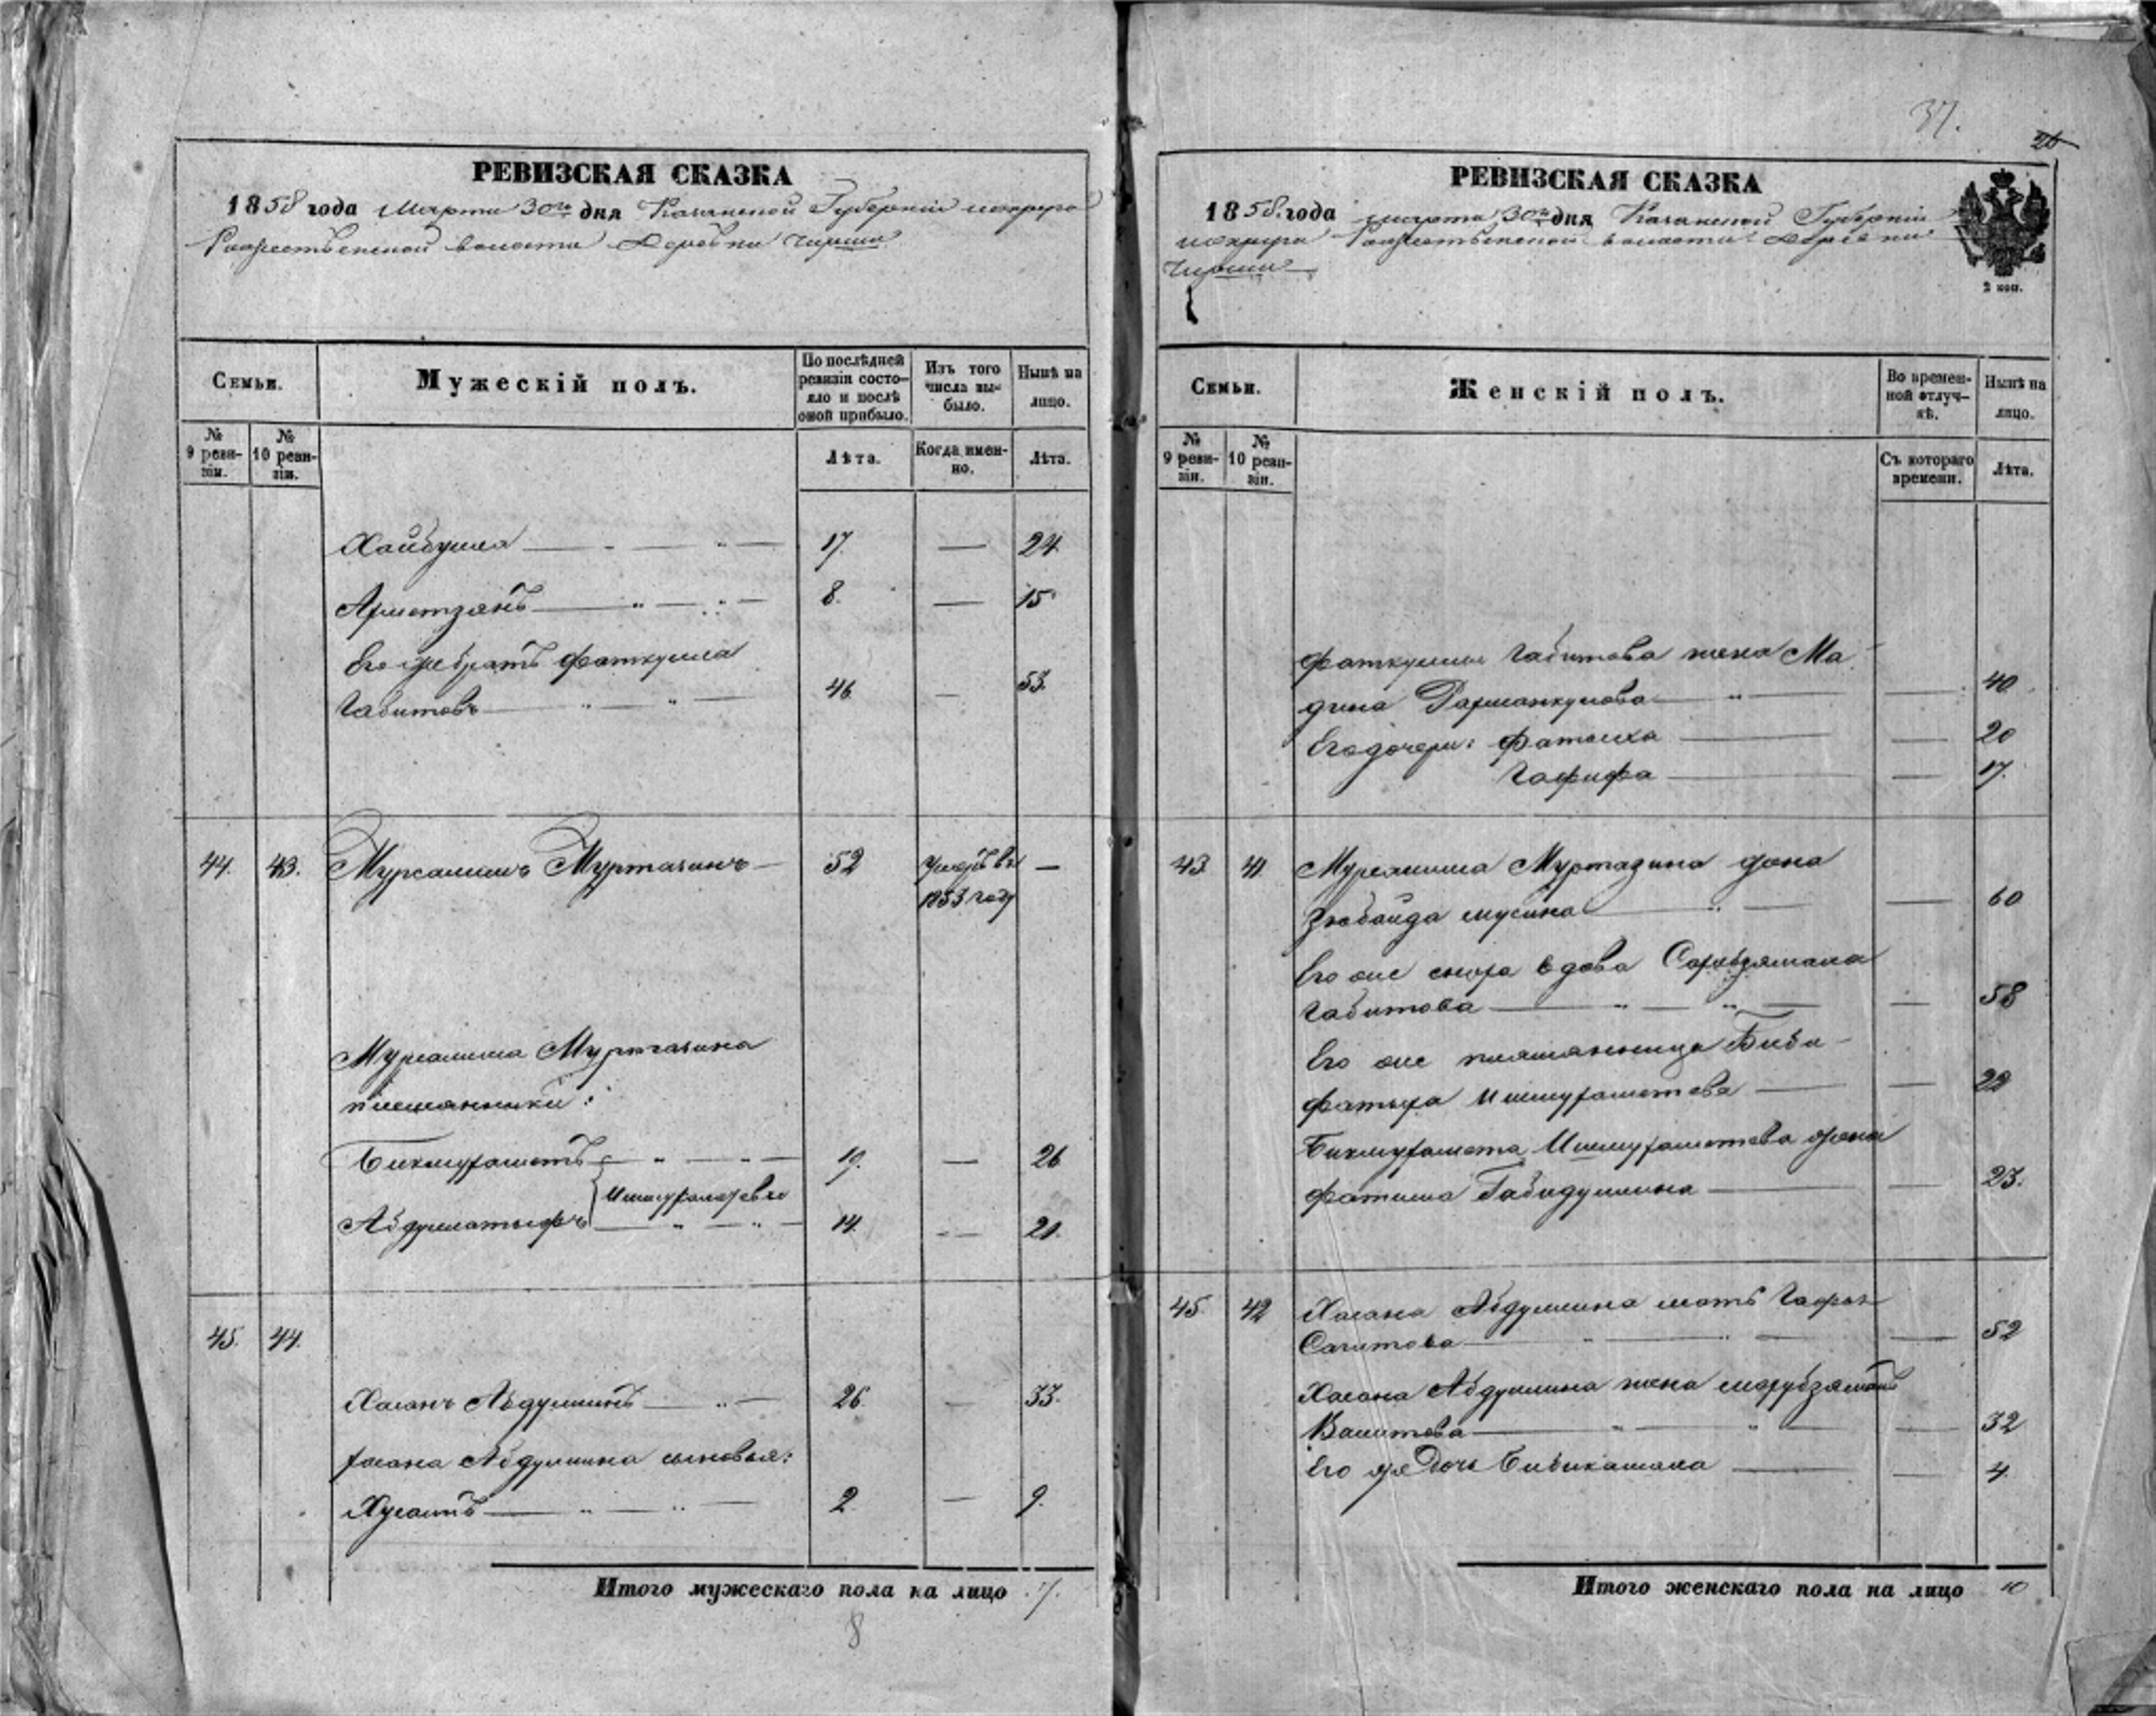 37.
26
РЕВИЗСКАЯ СКАЗКА
1858 года Марта 30го дня Казанской Губернии и округа
Рожественской волости Деревни Чирши
Семьи.
Мужескій полъ.
По послѣдней ревизіи состо-
яло и послѣ оной прибыло.
Изъ того числа вы-
было.
Нынѣ на лицо.
№ 9 реви-
зіи.
№ 10 реви-
зіи.
Лѣта.
Когда имен-
но.
Лѣта.
Хайбулла 17. — 24
Ахметзянъ 8. — 15
Его же братъ Фаткулла
Габитовъ 46. — 53.
44. 43. Мурсалимъ Муртазинъ 52 Умеръ въ —
1853 году
Мурсалима Муртазина
племянники:
Бикмухаметъ 19. — 26
Ишмухаметевы
Абдуллатыфъ 14. — 21.
45. 44.
Хасанъ Абдуллинъ 26. — 33.
Хасана Абдуллина сыновья:
Хусаинъ 2. — 9.
Итого мужескаго пола на лицо 7.
8
РЕВИЗСКАЯ СКАЗКА
1858. года марта 30го дня Казанской Губернии
и округа Рожественской волости Деревни
Чирши
2 коп.
Семьи.
Женскій полъ.
Во времен-
ной отлуч-
кѣ.
Нынѣ на лицо.
№ 9 реви-
зіи.
№ 10 реви-
зіи.
Съ котораго времени.
Лѣта.
Фаткуллы Габитова жена Ма-
дина Рахманкулова — 40
Его дочери: Фатыха — 20
Гафифа — 17.
43. 41. Мурсалима Муртазина жена
Зюбайда Мусина — 60
Его же сноха вдова
Габитова — 58
Его же племянница Биби-
фатыха Ишмухаметева — 22
Бикмухамета Ишмухаметева жена
Фатима Габидуллина — 23.
45. 42 Хасана Абдуллина мать
Сагитова — 52
Хасана Абдуллина жена
Вагитова — 32
Его же дочь Бибикамала — 4.
Итого женскаго пола на лицо 10